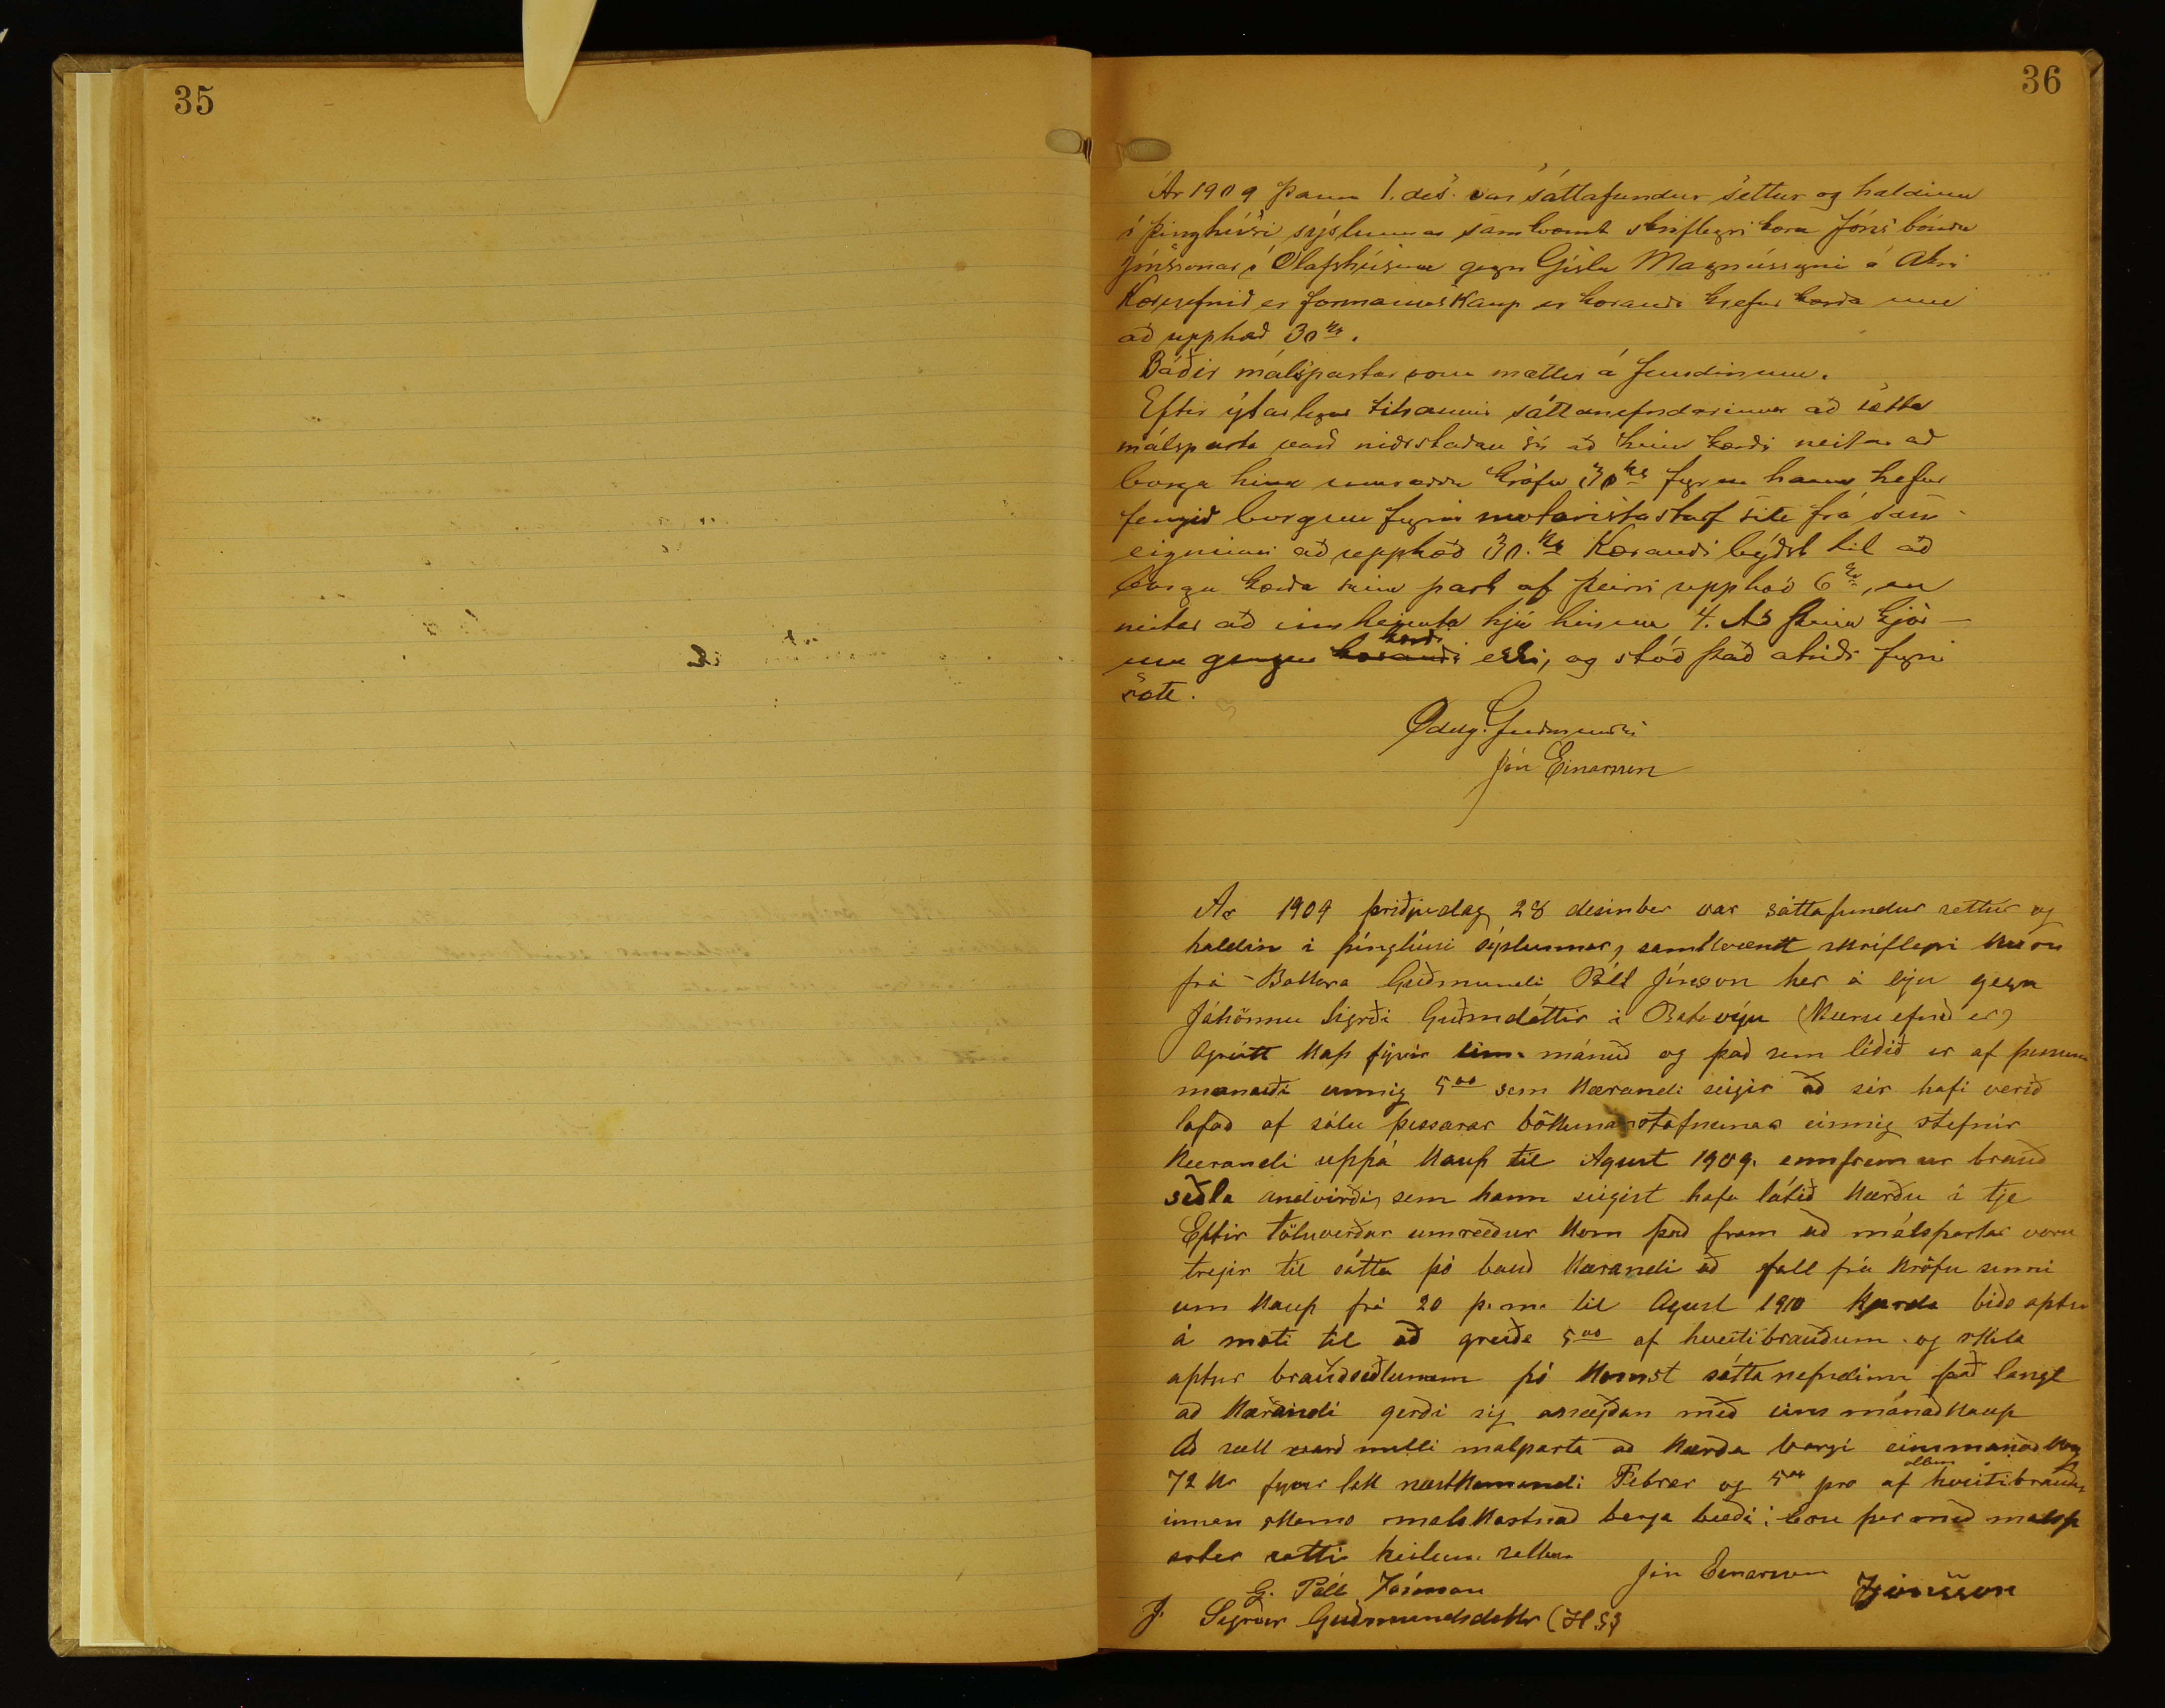 35
36
Ár 1909 þann 1. des. var sáttafundur settur og haldinn
í þinghúsi sýslunnar samkvæmt skriflegri kæru Jóns bónda
Jónssonar í Ólafshúsum gegn Gísla Magnússyni á Akri
Kæruefnið er formannskaup er kærandi krefur kærða um
að upphæð 30 kr.
Báðir málspartar voru mættir á fundinum.
Eftir ýtarlegar tilraunir sáttanefndarinnar að sætta
málsparta varð niðrstaðan sú að hinn kærði neitar að
borga hina umræddu kröfu 30 kr fyr en hann hefur
fengið borgun fyrir motoristastarf sitt frá sam-
eigninni að upphæð 30. kr Kærandi býðst til að
borga kærða sinn part af þeirri upphæð 6 kr, en
neitar að innheimta hjá hinum 4. Að þeim kjör-
um gengur kærandi kærði ekki, og stóð það atriði fyrir
sætt.
Oddg. Guðmundss
Jón Einarsson
Ár 1909 þriðjudag 28 desinber var sáttafundur settur og
haldin i þinghúsi sýslunnar, samkvæmt skriflegri kæru
frá Bakara Guðmundi Páll Jónsson her á eyju gegn
Jóhönnu Sigrði Guðmdóttir i Batavíju (Kæru efnið er)
ógreitt kaup fyrir eins mánuð og það sem liðið er af þessum
manuði einnig 5 00 sem kærandi seigir að sér hafi verið
lofað af sölu þessarar bökunar stofnunar einnig stefnir
Kærandi uppá kaup til Agust 1909. ennfremur brauð
seðla andvirði, sem hann seigist hafa látið kærðu i tje
Eptir töluverðar umræður kom það fram að málspartar voru
tregir til sátta þó bauð kærandi að fall frá kröfu sinni
um kaup frá 20 þ.m. til Agust 1910 kærða bíðs aptur
á moti til að greiða 5 00 af hveitibrauðum og skila
aptur brauðseðlunum þó komst sáttanefndinn það langt
að kærandi gerði sig ánægðan með eins mánaðkaup
Að sætt varð milli malparta að kærða borgi einsmánaðkaup
72 kr fyrir lok næstkomandi Febrar og 5 00 pro af öllum hveitibrauðum
innan skams malskostnað borga bæði: Eru þar með malsp
artar sattir heilum sáttum
Jón Einarsson
G. Páll Jónsson
Jónsson
J. Sigríður Guðmundsdóttir (H.S)